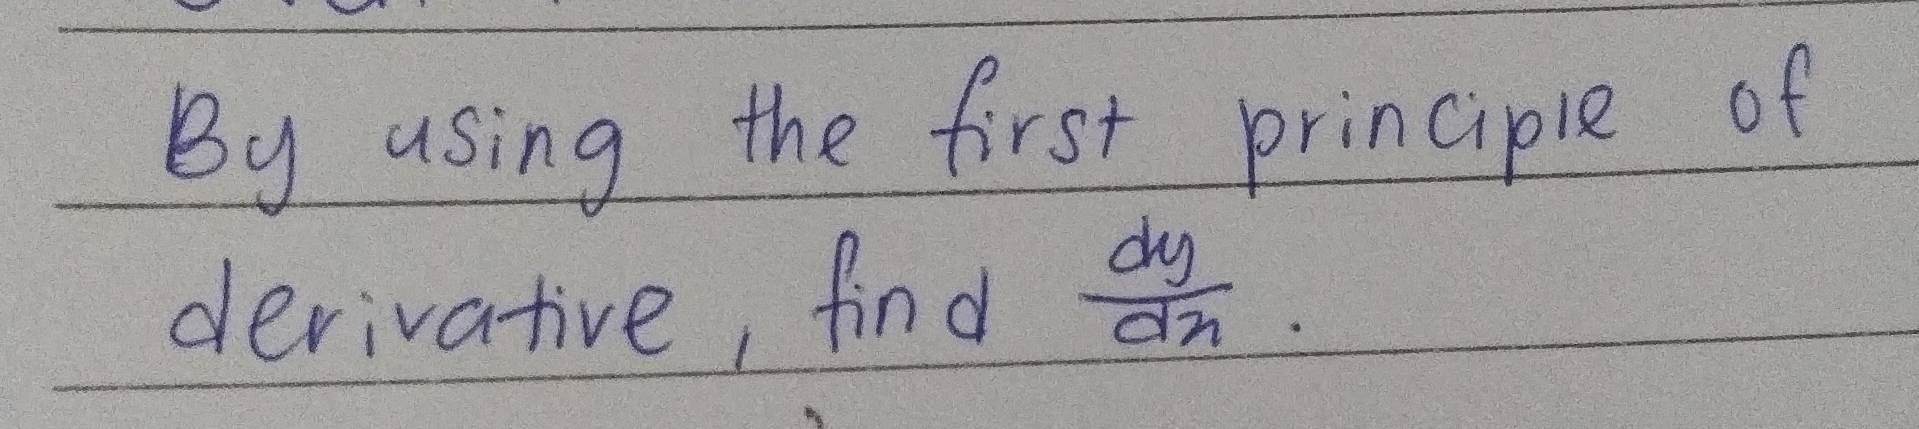 By using the first principle of
derivative, find dy/dx.